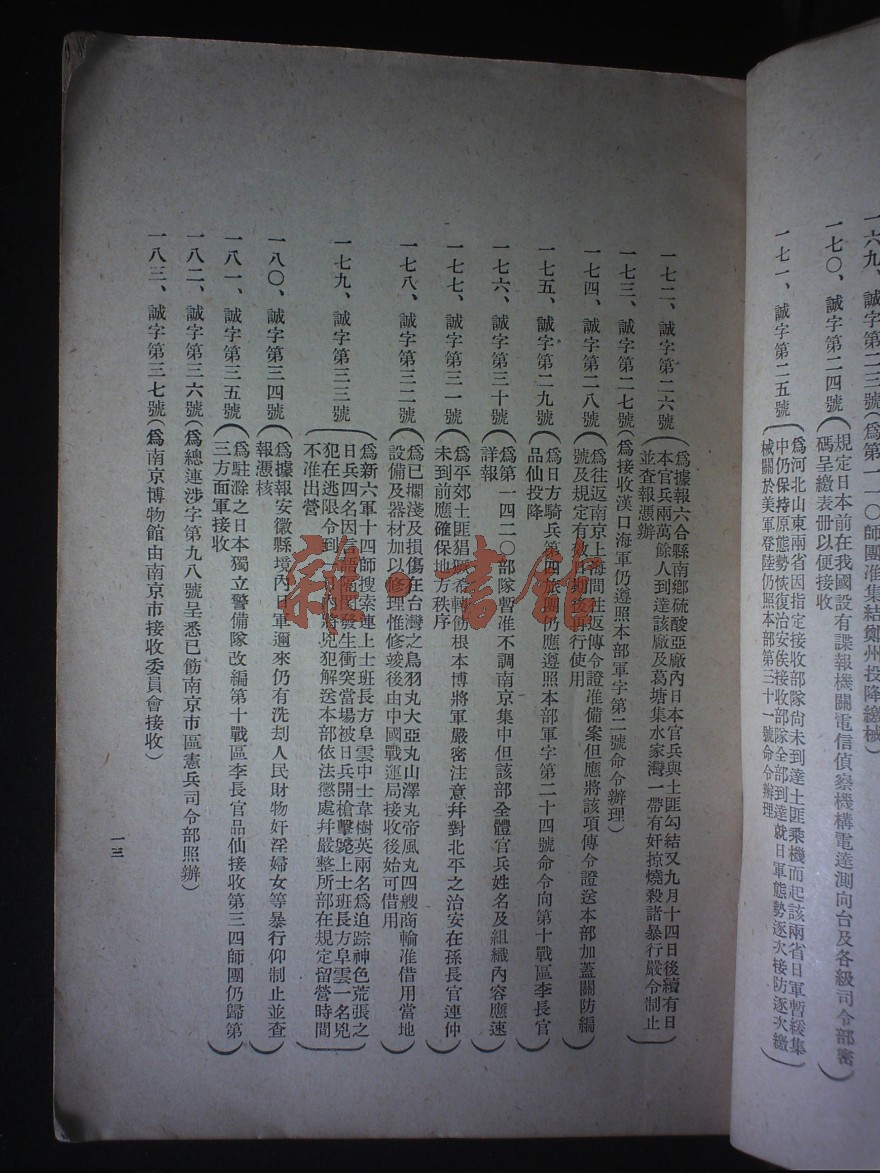 一六九、誠字第二三號(爲第一一〇師團准集結鄭州投降繳械)
一七〇、誠字第二四號(規定日本前在我國設有諜報機關電信偵察機構電達測向台及各級司令部密
碼呈繳表冊以便接收
一七一、誠字第二五號(爲河北山東兩省因指定接收部隊尚未到達土匪乘機而起該兩省日軍暫緩集
中仍保持原態勢恢復治安俟接收部隊全部到達就日軍態勢逐次接防逐次繳
械關於美軍登陸仍照本部第三十一號命令辦理)
一七二、誠字第二六號(爲據報六合縣南鄉硫酸亞廠內日本官兵與土匪勾結又九月十四日後續有日
本官兵兩萬餘人到達該廠及葛塘集水家灣一帶有奸掠燒殺諸暴行嚴令制止
並查報憑辦)
一七三、誠字第二七號(爲接收漢口海軍仍遵照本部軍字第二號命令辦理)
一七四、誠字第二八號(爲往返南京上海間往返傳令證准備案但應將該項傳令證送本部加蓋關防編
號及規定有效日期後再行使用)
一七五、誠字第二九號(爲日方騎兵第四旅團仍應遵照本部軍字第二十四號命令向第十戰區李長官
品仙投降)
一七六、誠字第三十號(爲第一四二〇部隊暫准不調南京集中但該部全體官兵姓名及組織內容應速
詳報)
一七七、誠字第三一號(爲平郊土匪猖 希轉飭根本博將軍嚴密注意幷對北平之治安在孫長官連仲
未到前應確保地方秩序)
一七八、誠字第三二號(爲已擱淺及損傷在台灣之鳥羽丸大亞丸山澤丸帝風丸四艘商輪准借用當地
設備及器材加以修理惟修竣後由中國戰運局接收後始可借用)
一七九、誠字第三三號(爲新六軍十四師搜索連上士班長方阜雲中士韋樹英兩名爲追踪神色荒張之
日兵四名因言語隔閡發生衝突當場被日兵開槍擊斃上士班長方阜雲一名兇
犯在逃限令到 日內將兇犯解送本部依法懲處幷嚴整所部在規定留營時間
不准出營)
一八〇、誠字第三四號(爲據報安徽縣境內日軍邇來仍有洗刦人民財物奸淫婦女等暴行仰制止並查
報憑核)
一八一、誠字第三五號(爲駐滁之日本獨立警備隊改編第十戰區李長官品仙接收第三四師團仍歸第
三方面軍接收)
一八二、誠字第三六號(爲總連涉字第九八號呈悉已飭南京市區憲兵司令部照辦)
一八三、誠字第三七號(爲南京博物館由南京市接收委員會接收)
一三